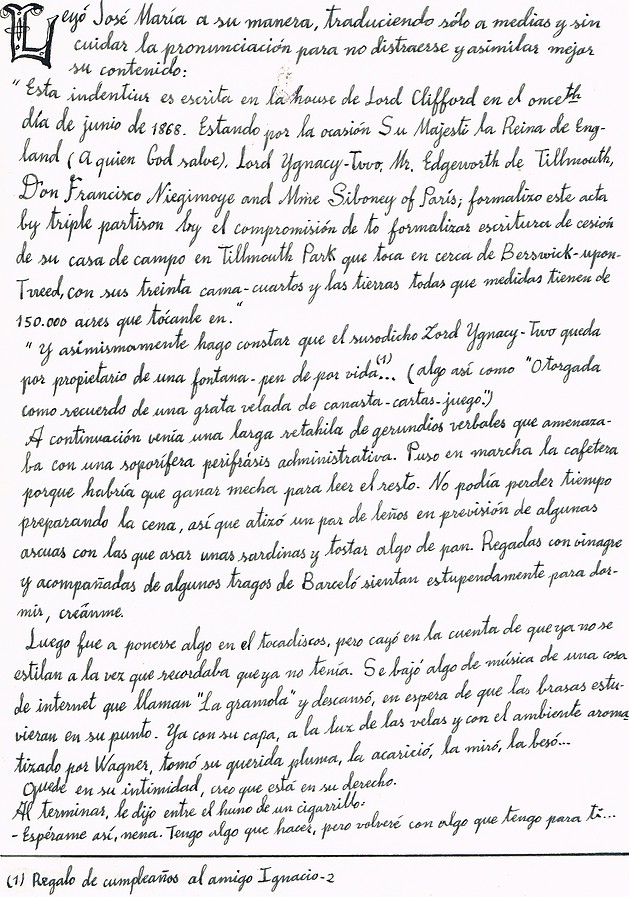 Leyó José María a su manera, traduciendo sólo a medias y sin
cuidar la pronunciación para no distraerse y asimilar mejor
su contenido:
"Esta indentiur es escrita en la house de Lord Clifford en el onceth
día de junio de 1868. Estando por la ocasión Su Majesti la Reina de Eng-
land (A quien God salve). Lord Ygnacy-Two, Mr. Edgeworth de Tillmouth,
Don Francisco Niegimoye and Mme Siboney of París; formalizo este acta
by triple partison by el compromisión de to formalizar escritura de cesión
de su casa de campo en Tillmouth Park que toca en cerca de Berswick-upon-
Tweed, con sus treinta cama-cuartos y las tierras todas que medidas tienen de
150.000 acres que tócanle en."
"Y asimismamente hago constar que el susodicho Lord Ygnacy-Two queda
por propietario de una fontana-pen de por vida(1)... (algo así como "Otorgada
como recuerdo de una grata velada de canasta-cartas-juego".)
A continuación venía una larga retahila de gerundios verbales que amenaza-
ba con una soporífera perifrásis administrativa. Puso en marcha la cafetera
porque habría que ganar mecha para leer el resto. No podía perder tiempo
preparando la cena, así que atizó un par de leños en previsión de algunas
ascuas con las que asar unas sardinas y tostar algo de pan. Regadas con vinagre
y acompañadas de algunos tragos de Barceló sientan estupendamente para dor-
mir, creánme.
Luego fue a ponerse algo en el tocadiscos, pero cayó en la cuenta de que ya no se
estilan a la vez que recordaba que ya no tenía. Se bajó algo de música de una cosa
de internet que llaman "La gramola" y descansó, en espera de que las brasas estu-
vieran en su punto. Ya con su capa, a la luz de las velas y con el ambiente aroma
tizado por Wagner, tomó su querida pluma, la acarició, la miró, la besó...
Quede en su intimidad, creo que está en su derecho.
Al terminar, le dijo entre el humo de un cigarrillo:
- Espérame así, nena. Tengo algo que hacer, pero volveré con algo que tengo para ti...
(1) Regalo de cumpleaños al amigo Ignacio-2